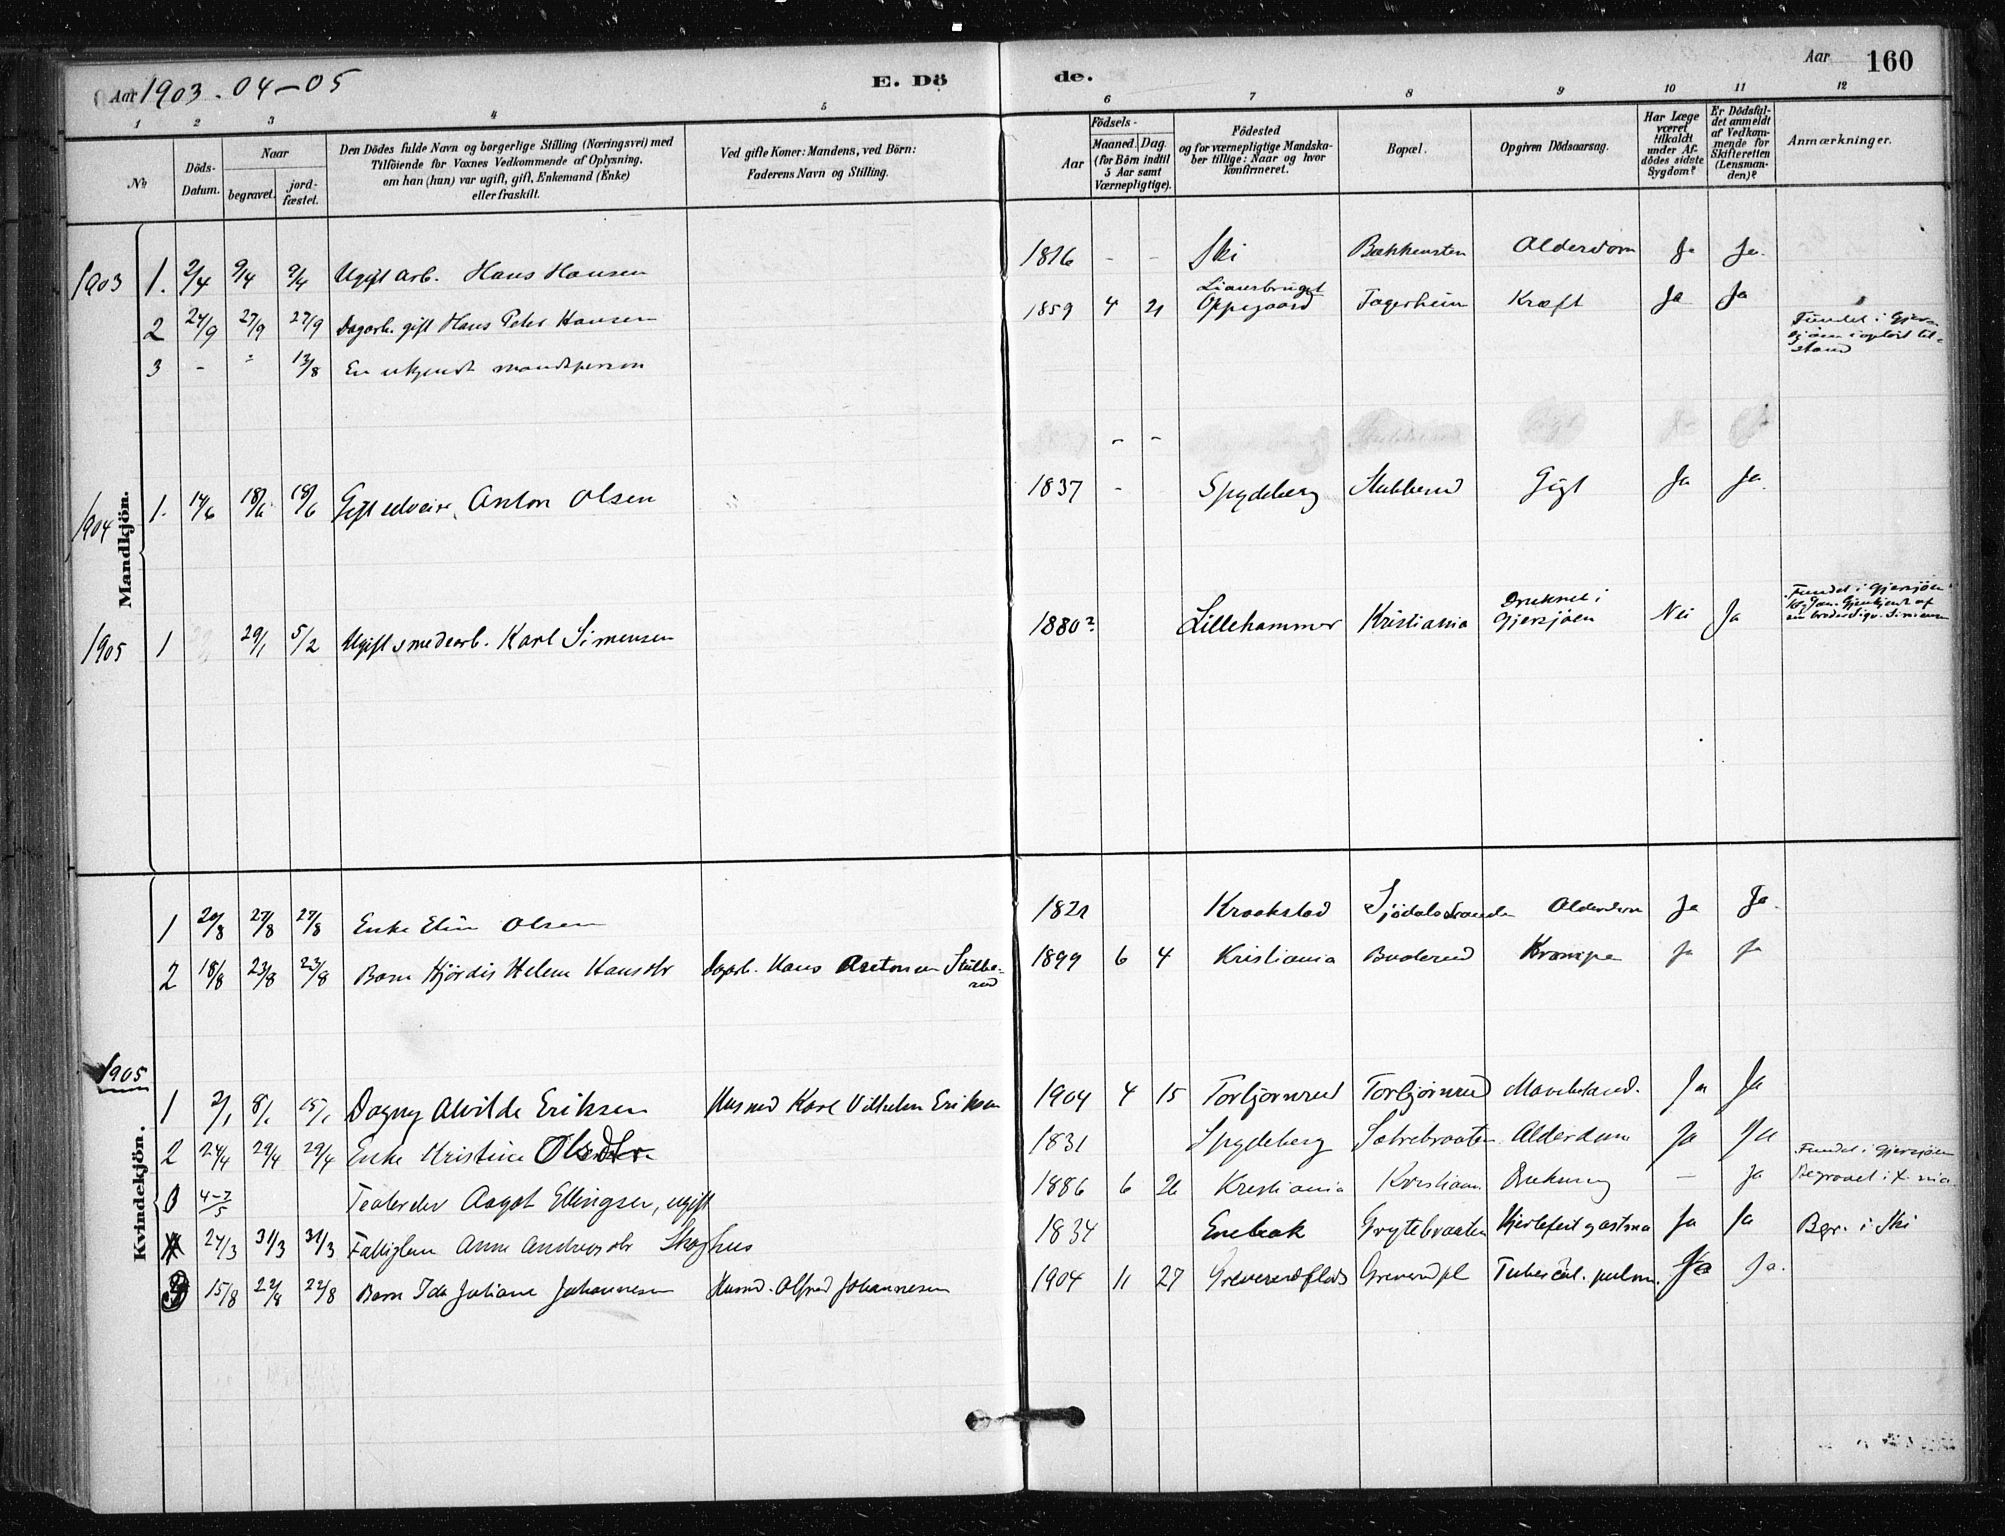 Aar 1903. 04-05
E. Dö
de.
Aar 160
1 2 3 4 5 6 7 8 9 10 11 12
No
Döds-
Datum.
Naar
begravet.
jord-
fæstet.
Den Dödes fulde Navn og borgerlige Stilling (Næringsvei) med
Tilföiende for Voxnes Vedkommende af Oplysning,
om han (hun) var ugift, gift, Enkemand (Enke)
eller fraskilt.
Ved gifte Koner: Mandens, ved Börn:
Faderens Navn og Stilling.
Födsels-
Aar
Maaned. Dag.
(for Börn indtil
5 Aar samt
Værnepligtige).
Födested
og for værnepligtige Mandska-
ber tillige: Naar og hvor
konfirmeret.
Bopæl.
Opgiven Dödsaarsag.
Har Læge
været
tilkaldt
under Af-
dödes sidste
Sygdom?
Er Dödsfal-
det anmeldt
af Vedkom-
mende for
Skifteretten
(Lensman-
den)?
Anmærkninger.
Mandkjön.
1903 1. 2/4 9/4 9/4 Ugift arb. Hans Hansen 1816 - - Ski Bækkensten Alderdom Ja Ja.
2 24/9 27/9 27/9 Dagarb. gift Hans Peter Hansen 1859 4 21 Oppegaard Fagerheim Kræft Ja Ja
3 - " 13/8 En ukjendt mandsperson Fundet i Gjer-
sjøen i opløst til-
stand
- -
1904 1. 14/6 18/6 18/6 Gift Anton Olsen 1837 - Spydeberg Stubberud Gigt Ja Ja.
1905 1 29/1 5/2 Ugift smedarb. Karl Simensen 1880? Lillehammer Kristiania Druknet i
Gjersjøen Nei Ja Fundet i Gjersjøen
Kvindekjön.
1 20/8 27/8 27/8 Enke Elin Olsen 1821 Kraakstad Sjødalstrand Alderdom Ja Ja.
2 18/8 23/8 23/8 Barn Hjørdis Helene Hansdtr Dagarb. Hans Antonsen Stubbe-
rud 1899 6 4 Kristiania Buderud Krampe Ja Ja
1905
1 2/1 8/1 15/1 Dagny Alvilde Eriksen Husmd Karl Vilhelm Eriksen 1904 4 15 Torbjørnrud Torbjørnrud Ja Ja
2 24/4 29/4 29/4 Enke Kristine Olsdtr. 1831 Spydeberg Sætrebraaten Alderdom Ja Ja
0 4-7/5 Aagot Ellingsen, ugift 1886 6 26 Kristiania Kristiania Drukning - Ja Fundet i Gjersjøen
Begravet i X-nia
24/3 31/3 31/3 Fattiglem Anne Andreasdtr Skoghus 1834 Enebak Grytebraaten Hjertefeil og astma Ja Ja Begr. i Ski
3 15/8 22/8 22/8 Barn Ida Juliane Johannesen Husmd. Alfred Johannesen 1904 11 27 Greverudpl Tubercul. pulm. Ja Ja.